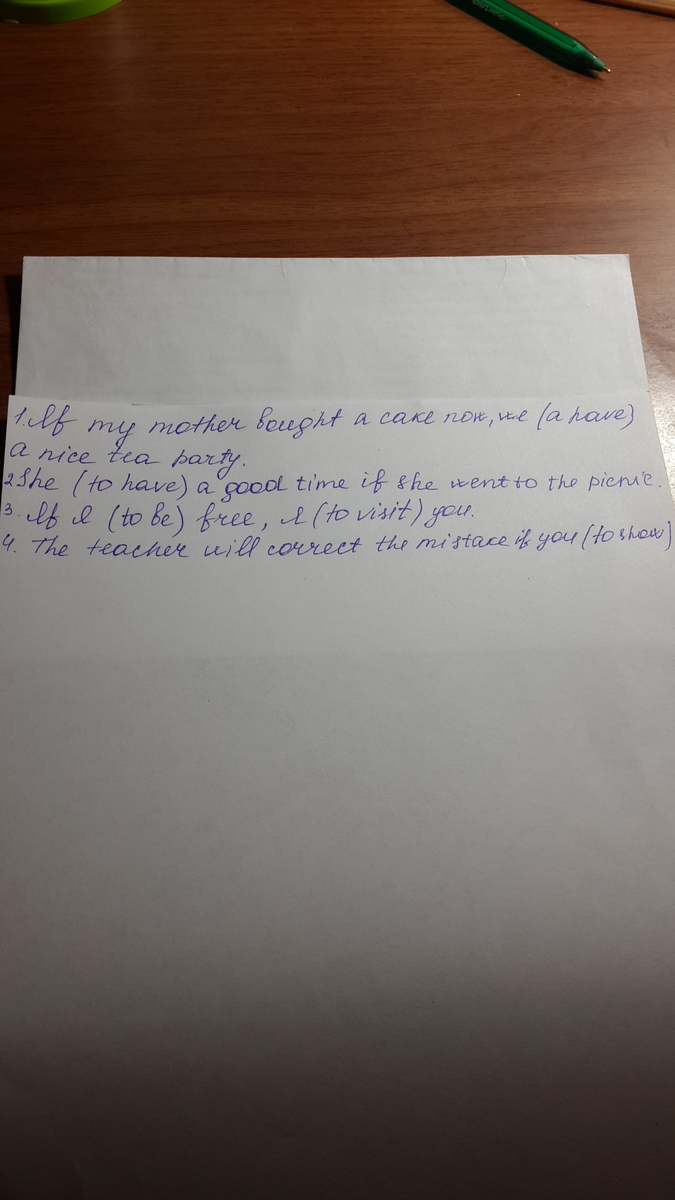 1. If my mother bought a cake now, we (a have)
a nice tea party.
2 She (to have) a good time if she went to the picnic.
3. If I (to be) free, I (to visit) you.
4. The teacher will correct the mistake if you (to show)